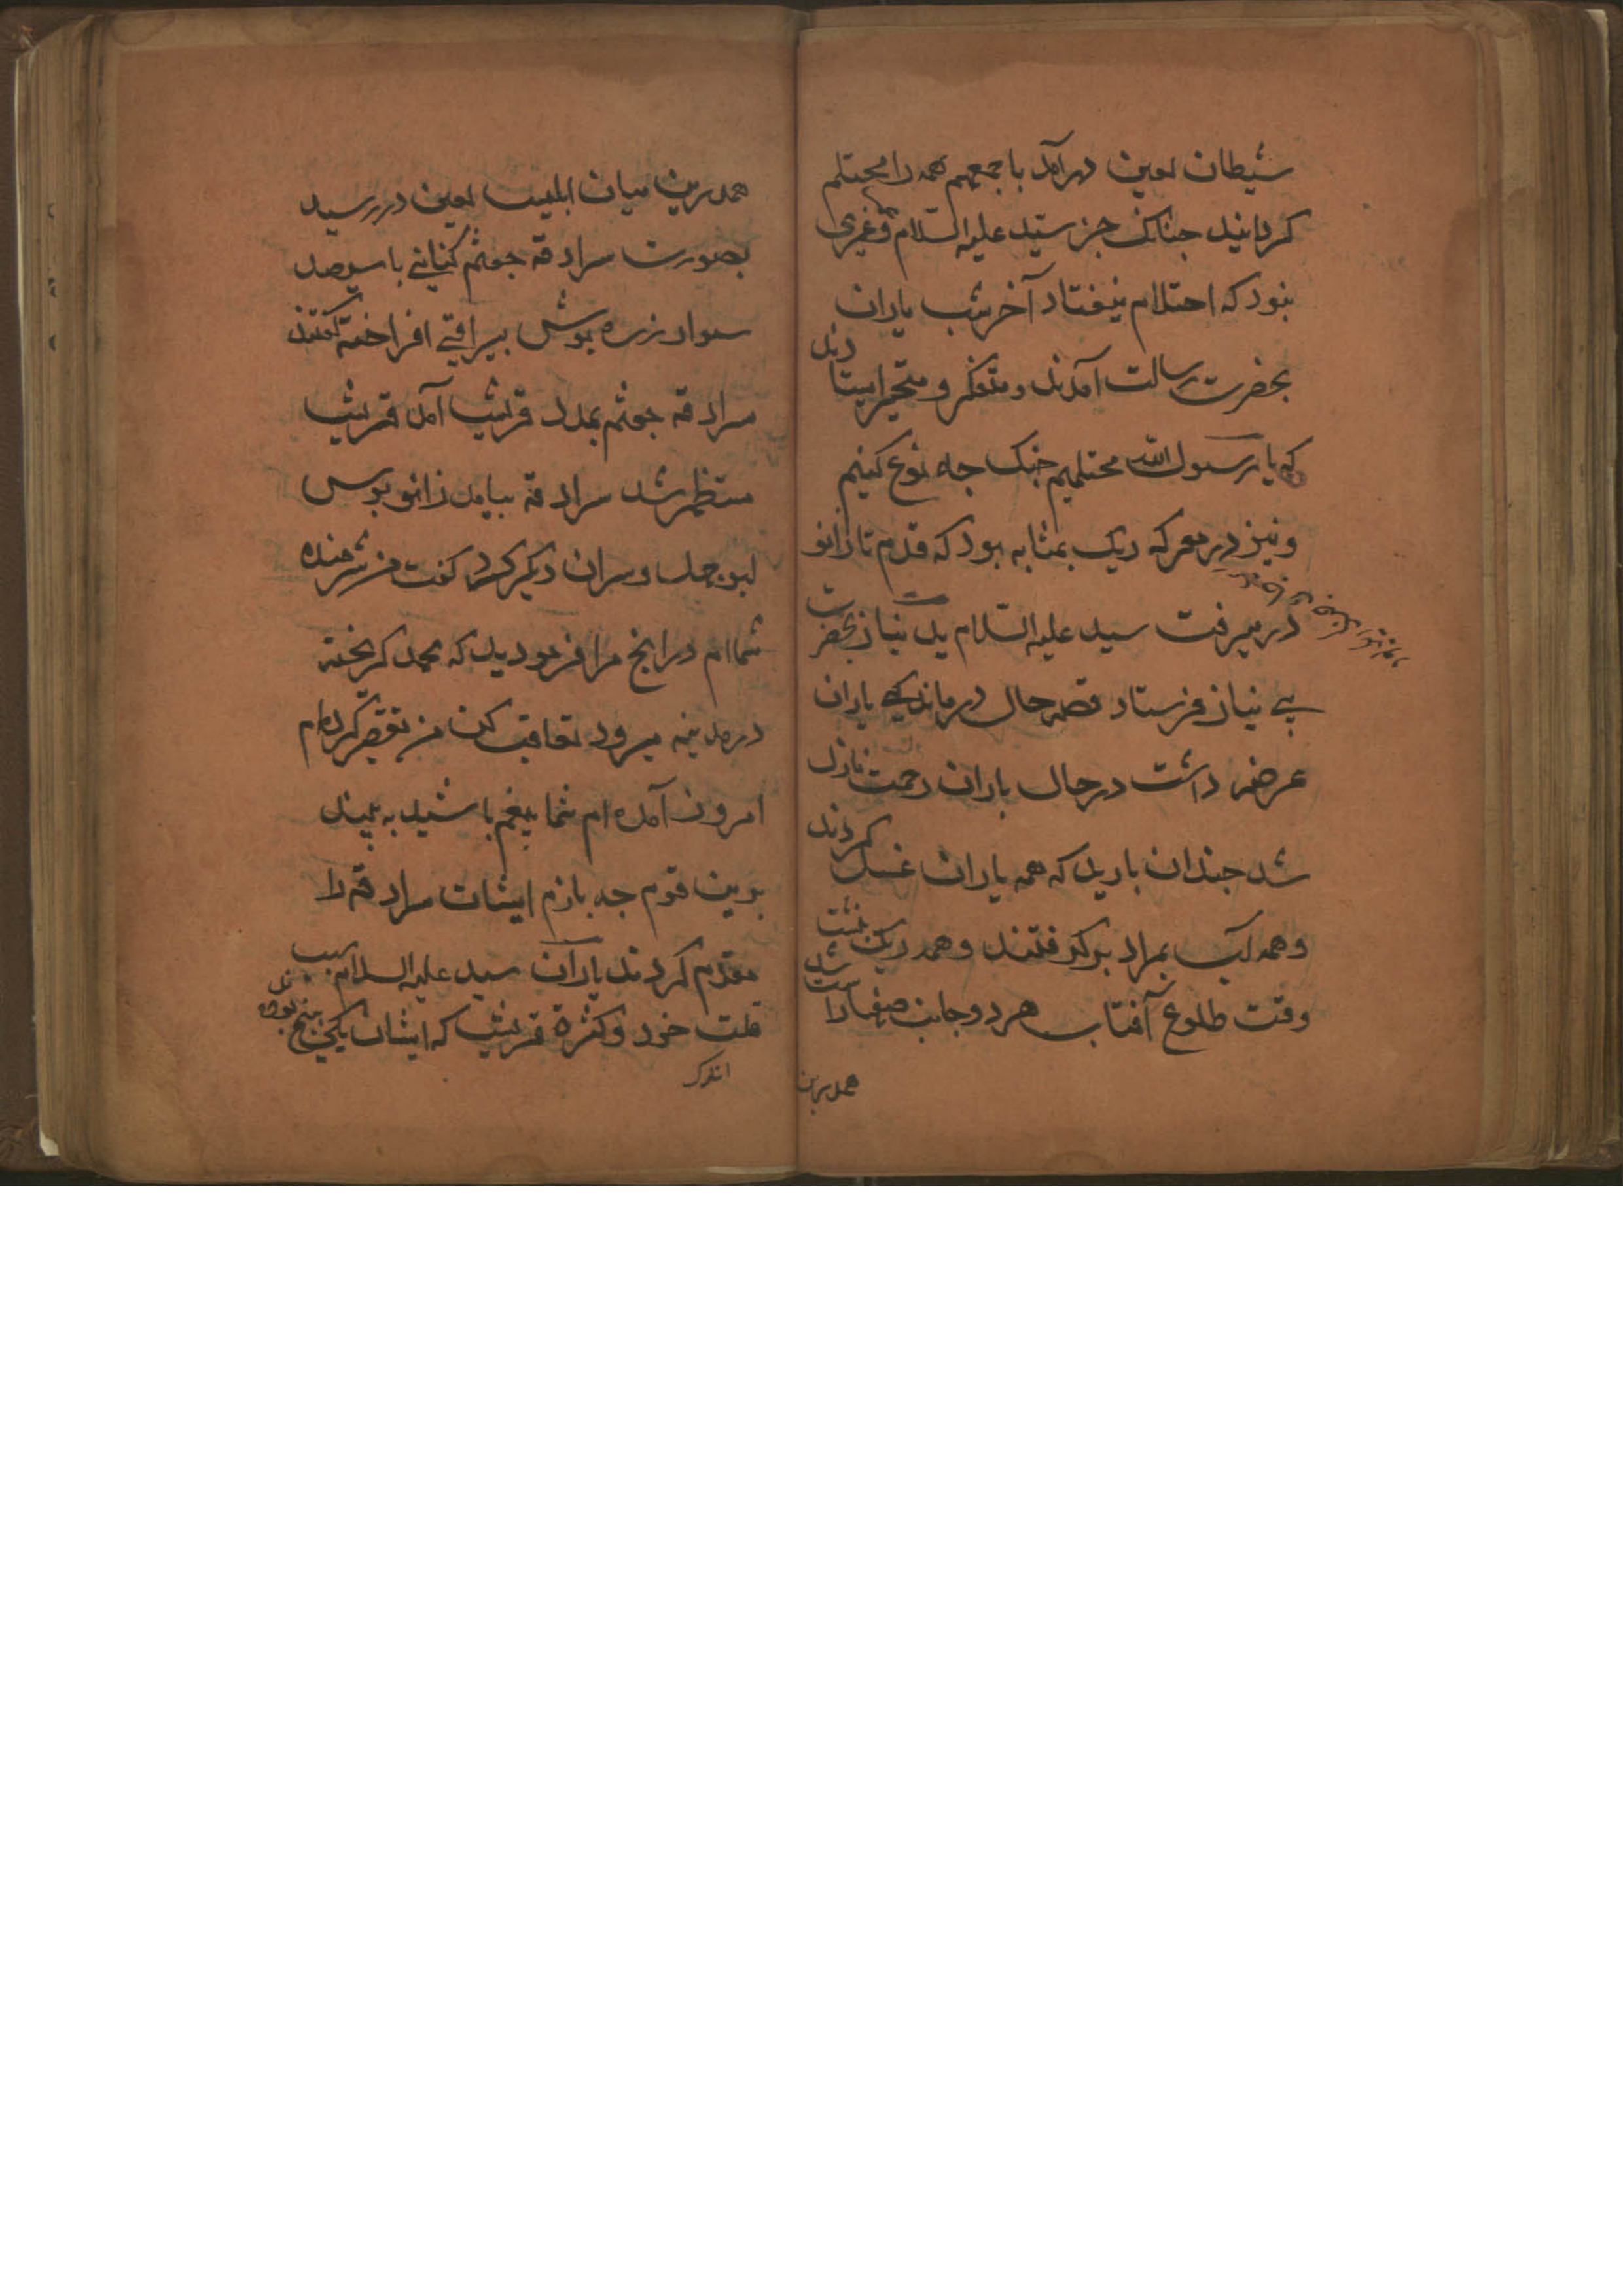 شیطان لعین درآمد باجمعهم همه را محتلم
کردانید جنانک جز سید علیه السلام وغیری
نبود که احتلام نیفتاد آخر شب یاران
بحضرت رسالت آمدند ومتفکر و متحیر ایستادند
که یا رسول الله محتلمیم جنک جه نوع کنیم
ونیز در معرکه ریک بمثابه بود که قدم تا زانو
در میرفت سید علیه السلام ید نیاز بحضرت
بی نیاز فرستاد قصه حال درماندکی یاران
عرضه داشت در حال باران رحمت نازل
شد جندان بارید که همه یاران غسل کردند
وهمه آب بمراد بر کرفتند وهمه ریک بنشست
وقت طلوع آفتاب هر دو جانب صفها راست شد
همدرین
همدرین میان ابلیس لعین در رسید
بصورت سراقه جعثم کنانی با سیصد
سوار زره پوش بیراقی افراخته کفتند
سراقه جعثم بمدد قریش آمد قریش
منتظر شد سراقه بیامد زانو بوس
ابو جهل وسران دیکر کرد کفت من شرمنده
شماام درانج مرا فرمودید که محمد کریخته
در مدینه میرود تعاقب کن من تقصیر کرده ام
امروز آمده ام شما بیغم باشید به بینید
برین قوم جه بازم ایشان سراقه را
مقدم کردند یاران سید علیه السلام سبب
قلت خود وکثرة قریش که ایشان یکی بنج بودند
اندک